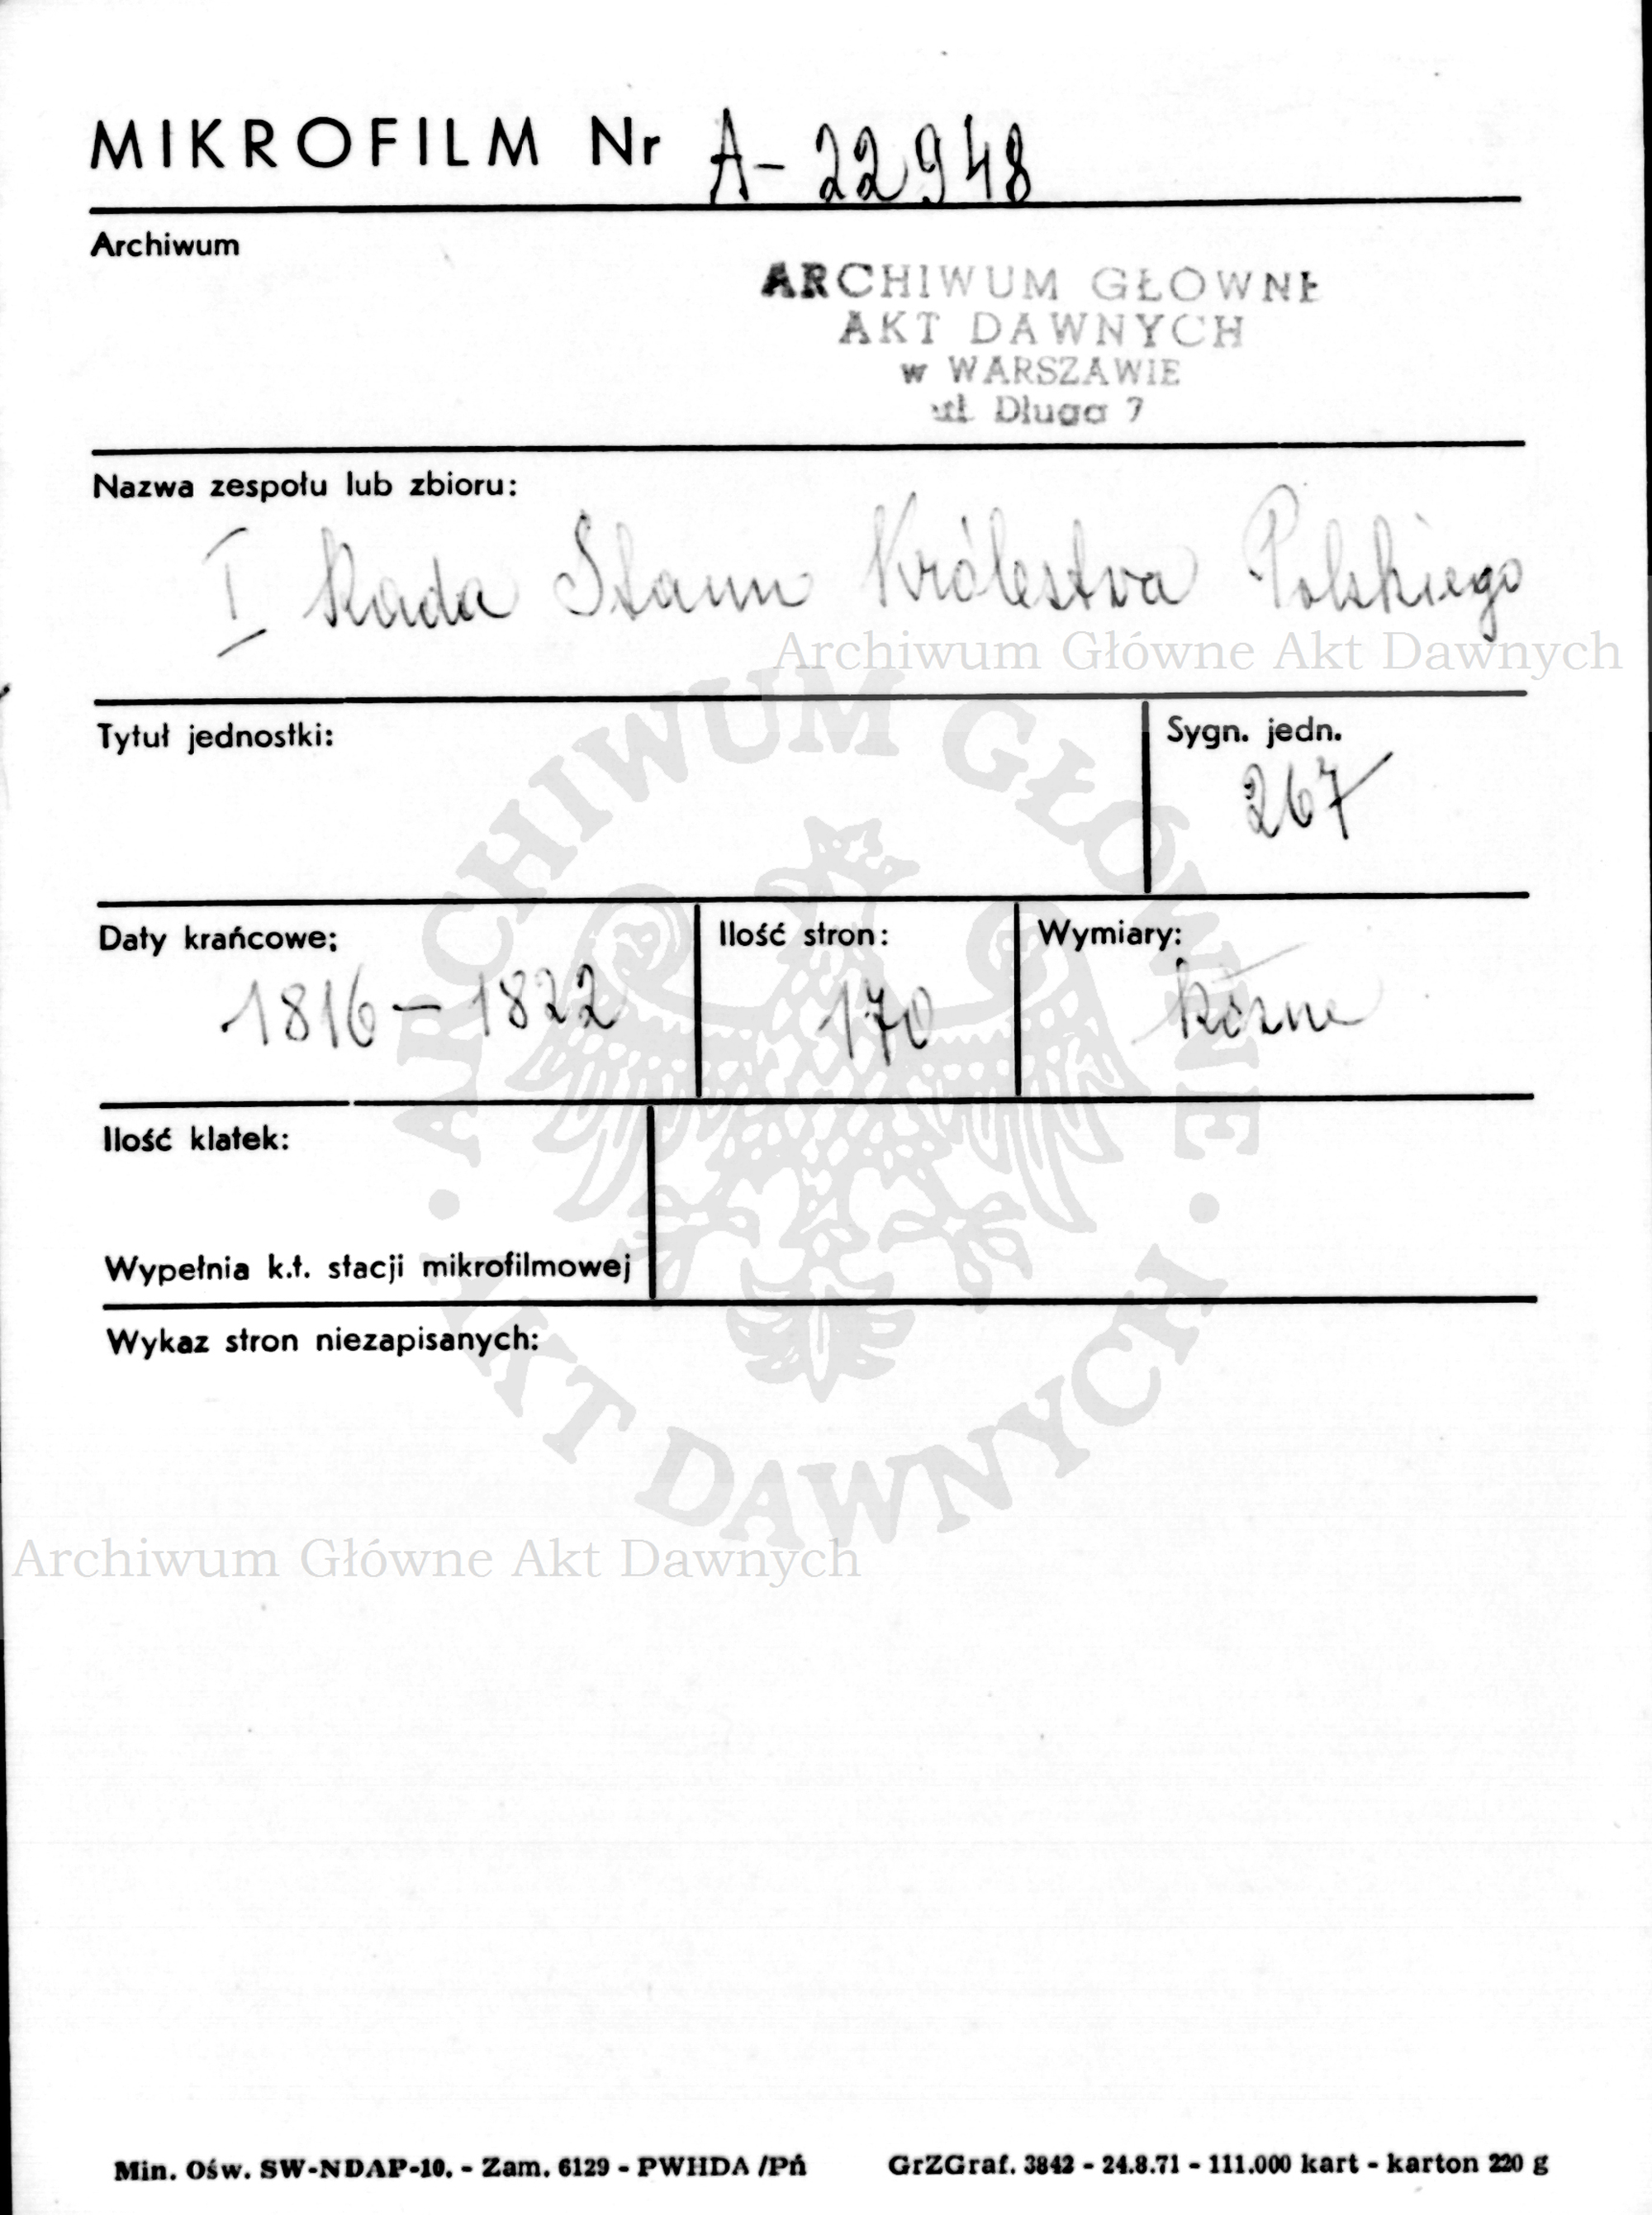 MIKROFILM Nr A-22948
Archiwum
ARCHIWUM GŁOWNE
AKT DAWNYCH
w WARSZAWIE
ul. Długa 7
Nazwa zespołu lub zbioru:
I Rada Stanu Królestwa Polskiego
Archiwum Główne Akt Dawnych
Tytuł jednostki:
Sygn. jedn.
267
Daty krańcowe:
1816-1822
Ilość stron:
170
Wymiary:
różne
Ilość klatek:
Wypełnia k.t. stacji mikrofilmowej
Wykaz stron niezapisanych:
ARCHIWUM GŁÓWNE · AKT DAWNYCH ·
Archiwum Główne Akt Dawnych
Min. Ośw. SW-NDAP-10. - Zam. 6129 - PWHDA /Pń GrZGraf. 3842 - 24.8.71 - 111.000 kart - karton 220 g